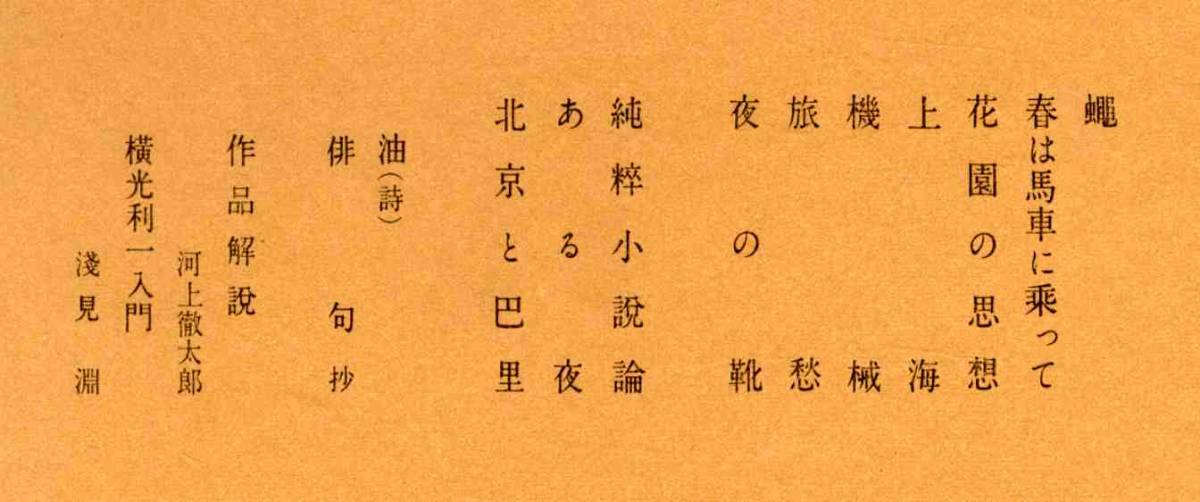 蠅
春は馬車に乗って
花園の思想
上海
機械
旅愁
夜の靴
純粹小說論
ある夜
北京と巴里
油(詩)
俳句抄
作品解說
河上徹太郎
橫光利一入門
淺見淵